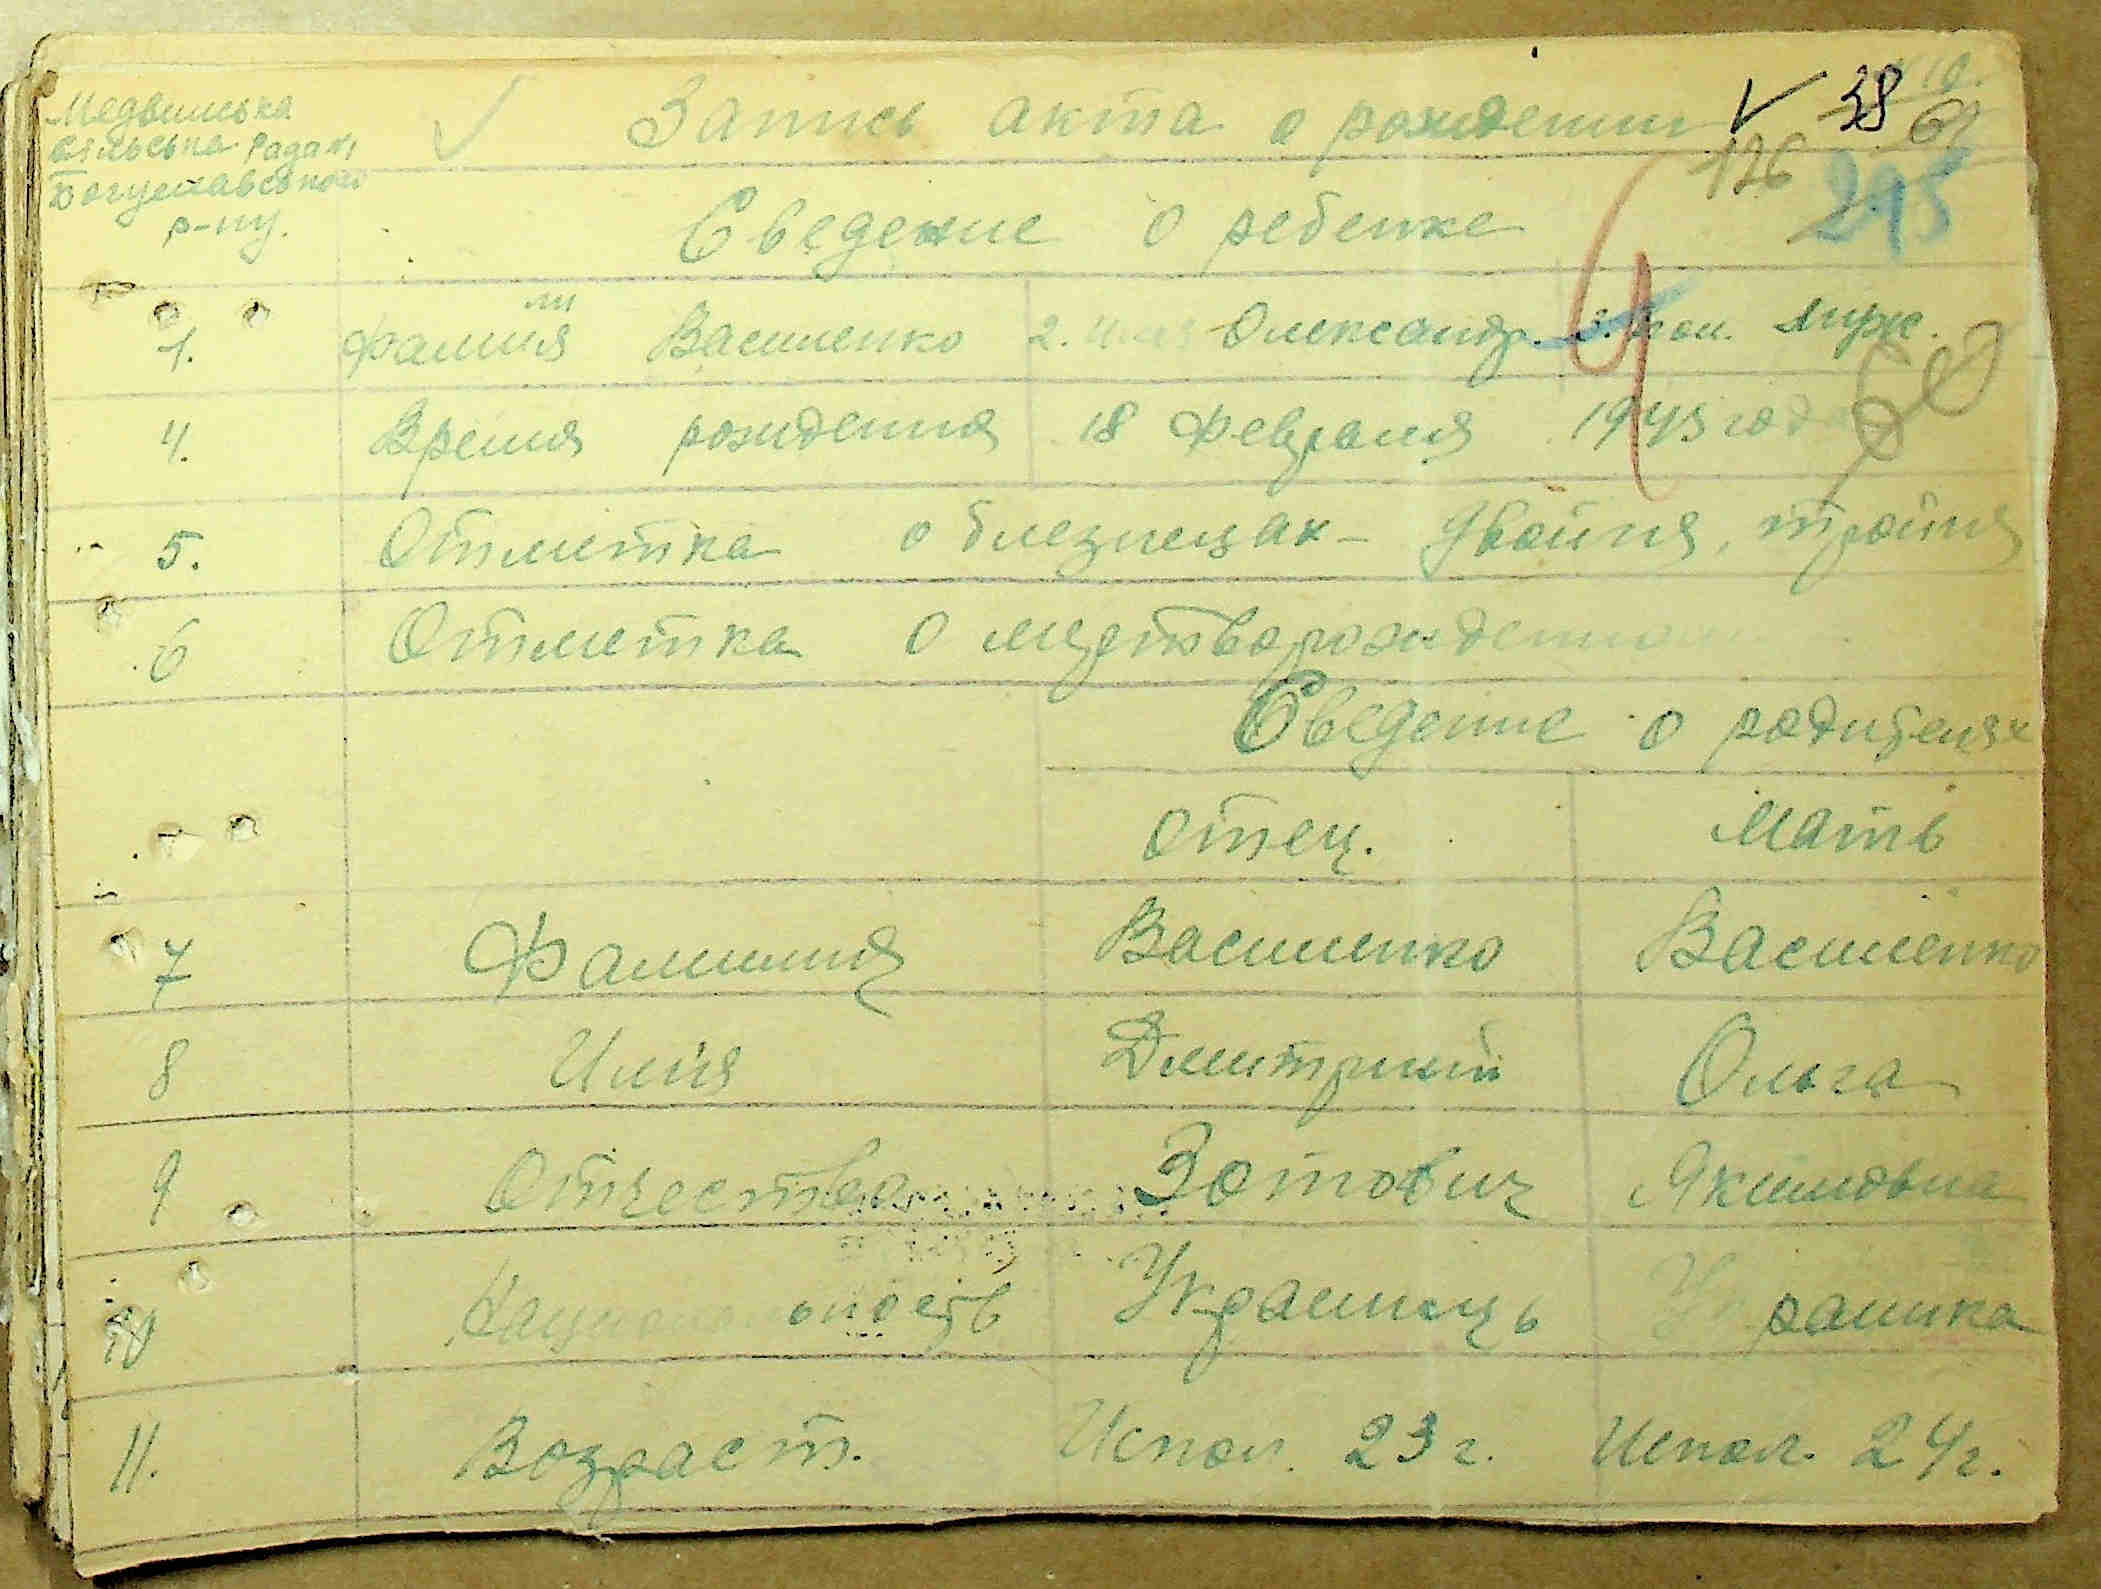 Медвинська
сільська Рада
Богуславського
р-ну.
Запись акта о рождении
38
69
126
295
Сведение о ребенке
1. Фамилия Василенко 2. Имя Олександр. 3. Пол. Мужс.
4. Время рождения 18 Февраля 1945 года
5. Отметка о блезнецах - Двойня, тройня
6 Отметка о мертворожденном
Сведение о родителях
Отец. Мать
7 Фамилия Василенко Василенко
8 Имя Дмитрий Ольга
9 Отчество Зотович Якимовна
10 Национальность Украинець Украинка
11. Возраст. Испол. 23 г. Испол. 24 г.